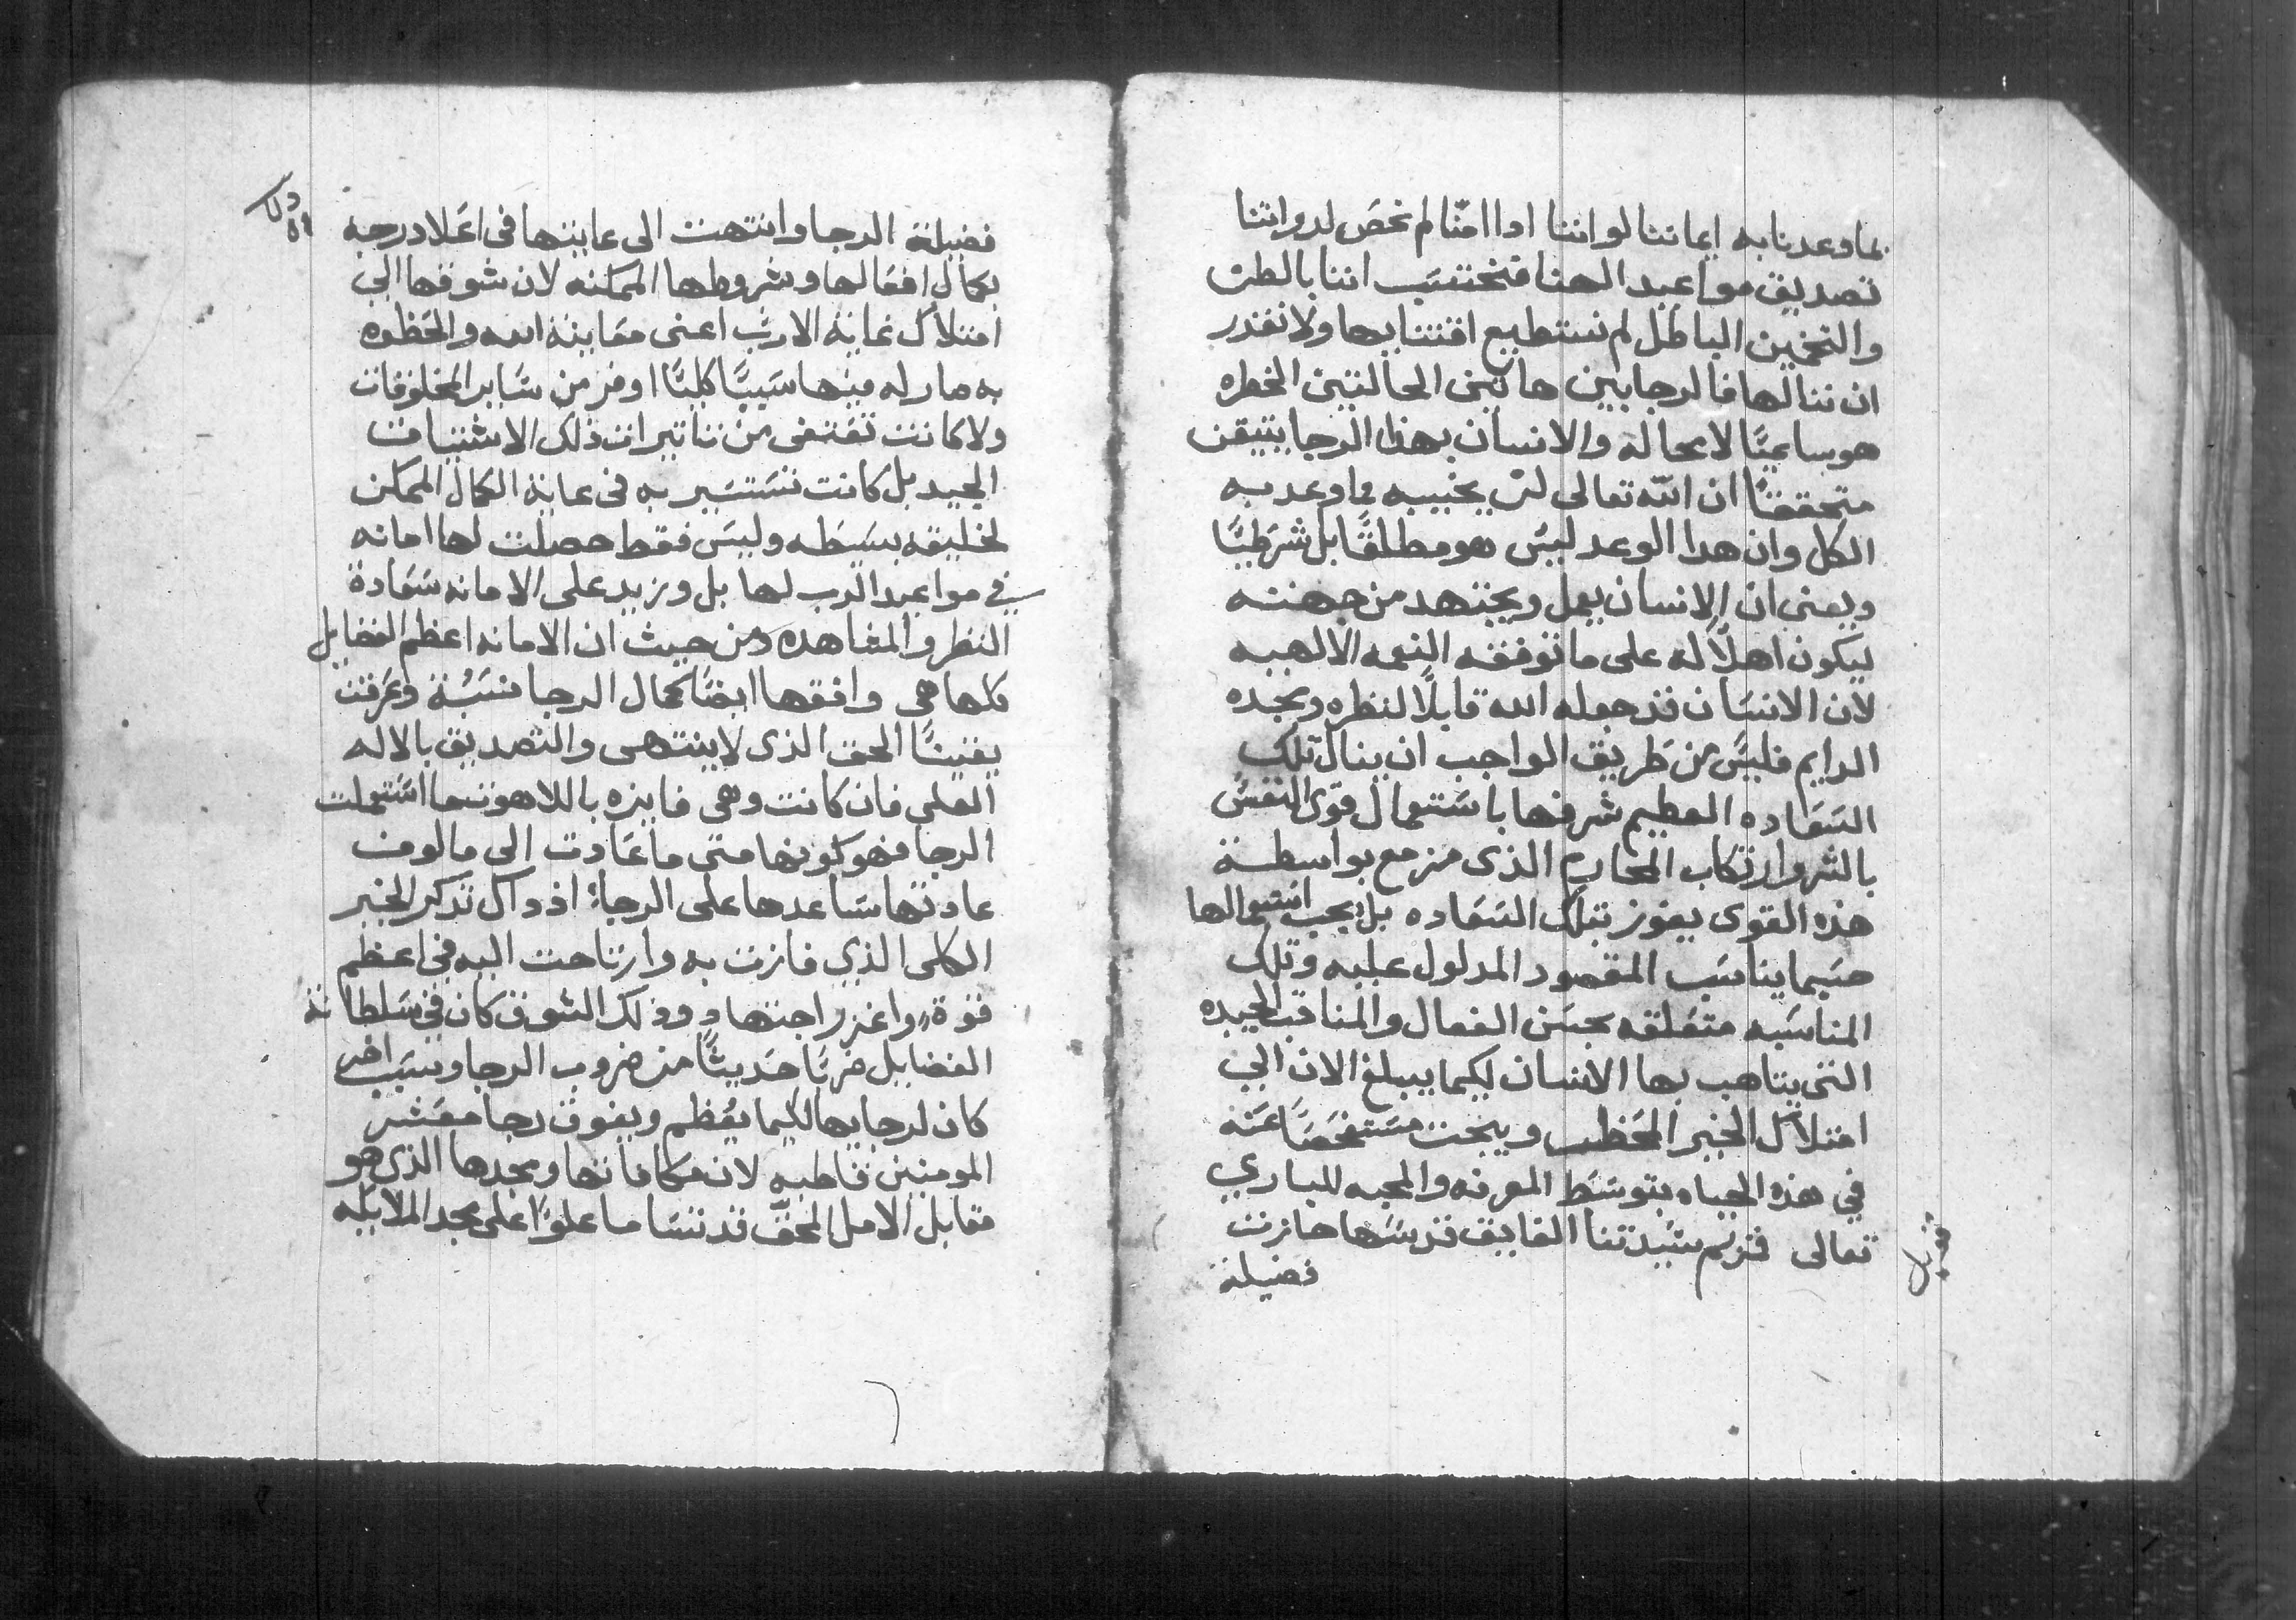 بما وعدنا به ايماننا لو اننا اذا امنّا لم نخصَ لذواتنا
تصديق مواعيد الهنا فنحتسَب اننا بالظن
والتخمين الباطل لم نستطيع اقتنايها ولا نقدر
ان ننالها فالرجا بين هاتين الحالتين الخطره
هو ساعيًا لا محاله والانسان بهذا الرجا يتيقن
متحققًا ان الله تعالى لن يخيبه بما وعد به
الكل وان هدا الوعد ليسَ هو مطلقًا بل شرَطيًا
ويعني ان الانسان يعمل ويجتهد من جهته
ليكون اهلًا له على ما توفقه النعمه الالهيه
لان الانسَان قد جعله الله قابلًا لنظره ومجده
الدايم فليسَ من طريق الواجب ان ينال تلك
السَعَاده العظيم شرفها باسَتعمال قوى النفسَ
بالشر وارتكاب المحارم الذي مزمع بواسطة
هذه القوى يفوز بتلك السَعَاده بل يجب استعمالها
حسَبما يناسَب المقصود المدلول عليه وتلك
المناسَبه متعَلقه بحسَن الفعال والمناقب الحميده
التي يتاهب بها الانسان ليكما يبلغ الان الي
امتلاك الخير المحَظب ويبحت مستفحَصًا عَنه
في هذه الحياه بتوسَط المعرفه والمحبه للباري
تعالى فمريم سَيدتنا الفايق قدسَها حازت
فضيلة
فضيلة الرجا وانتهت الى غايتها في اعَلا درجه
بكمال افعَالها وشروطها الممكنه لان شوقها الي
امتلاك غاية الارب اعني معَاينة الله والحَظوه
به صار له فيها سَببًا كليًا اوفر من سَاير المخلوقات
ولا كانت تعَتفى من تاتيرات ذلك الاشتياق
المجيد بل كانت تسَتسَير به في غاية الكمال الممكن
لخليقه بسَيَطه وليسَ فقط حصلت لها امانه
في مواعيد الرب لها بل وزيد على الامانه سَعَادة
النظر والمشاهده ومن حيث ان الامانه اعظم الفضايل
كلها هي وافقها ايضًا كمال الرجا نسَبَة وعَرفت
يقينًا الحق الذي لا ينتهي والتصديق بالاله
العلي فان كانت وهي فايزه باللاهوت ما اسَتعملت
الرجا فهو كونها متى ما عَادت الى مالوف
عادتها سَاعدها على الرجا اذ داك تذكر الخير
الكلى الذي فازت به وارتاحت اليه في اعظم
قوة واغزر اجتهاد وذلك الشوق كان في سَلطانة
الفضايل ضربَا حَديثًا من ضروب الرجا وسَبَب اخر
كان لرجايها لكيما يعَظم ويفوق رجا معَشر
المومنين قاطبه لان مكافاتها ومجدها الذي هو
مقابل الامل المحقّ قد تسَاما علوًا على مجد الملايكه